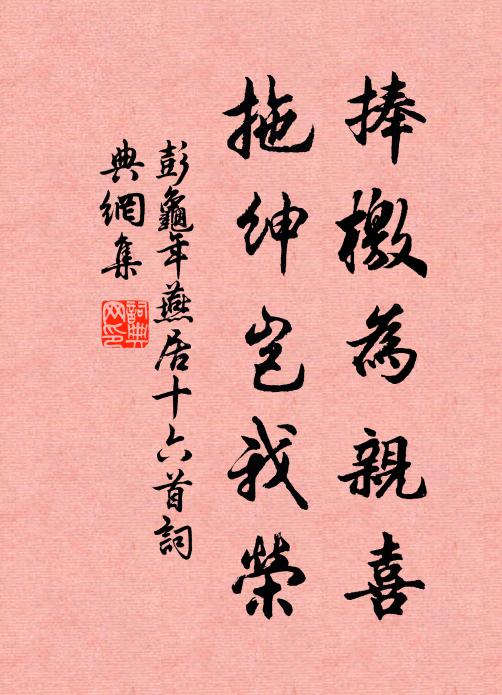 捧檄為親喜
拖紳豈我榮
彭龜年燕居十六首詞
典網集
詞典网印